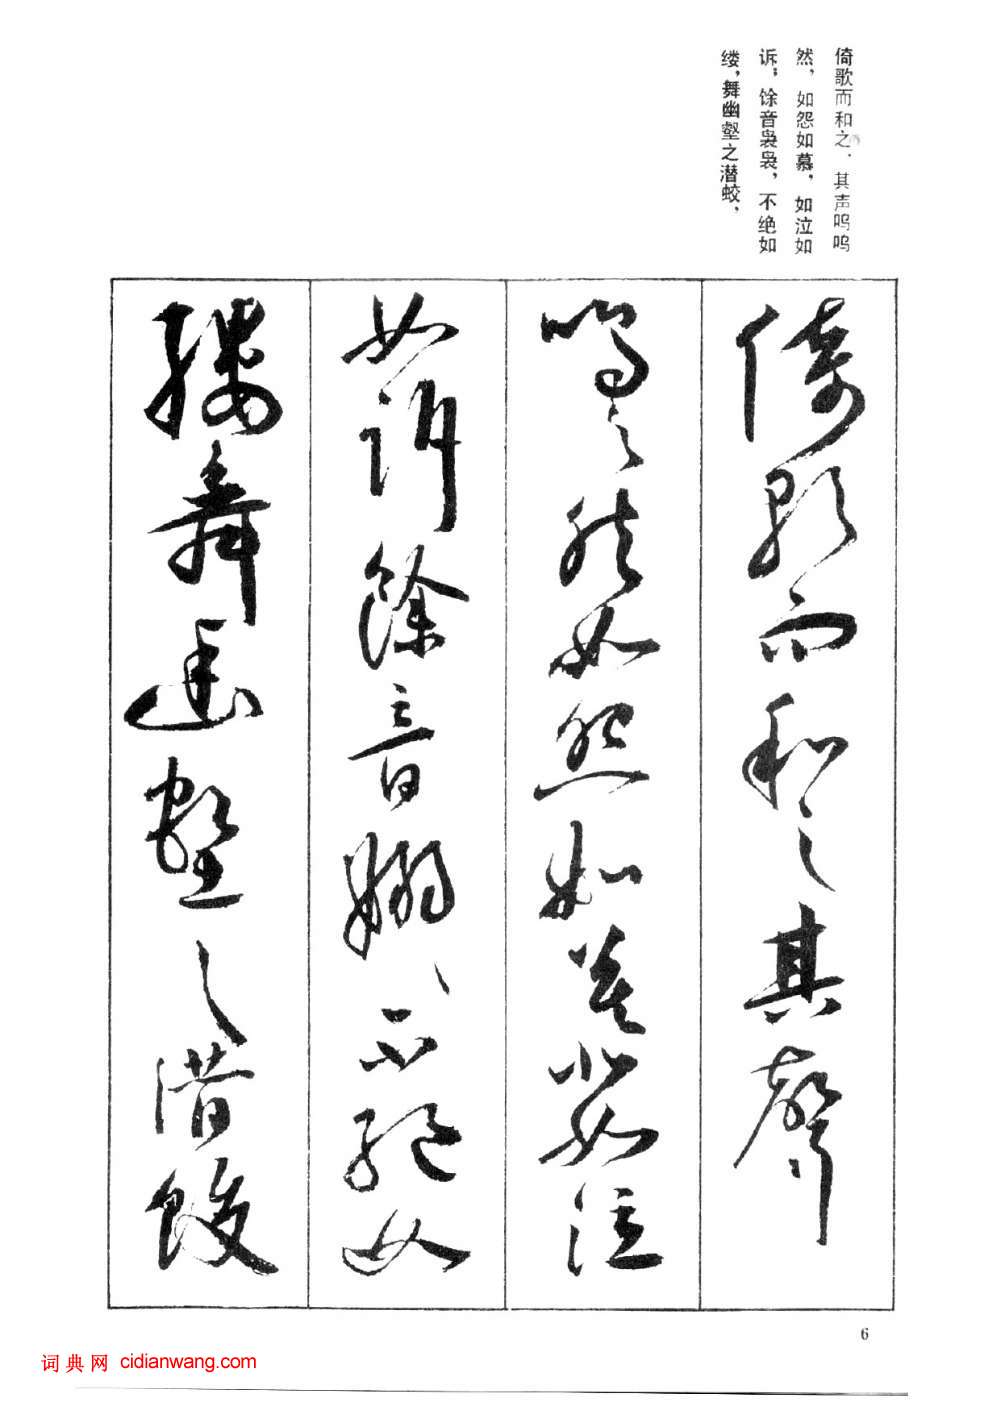 倚歌而和之，其声呜呜
然，如怨如慕，如泣如
诉；馀音袅袅，不绝如
缕，舞幽壑之潜蛟，
倚歌而和之其聲
嗚〻然如怨如慕如泣
如訴餘音嫋〻不絕如
縷舞幽壑之潛蛟
6
词典网 cidianwang.com